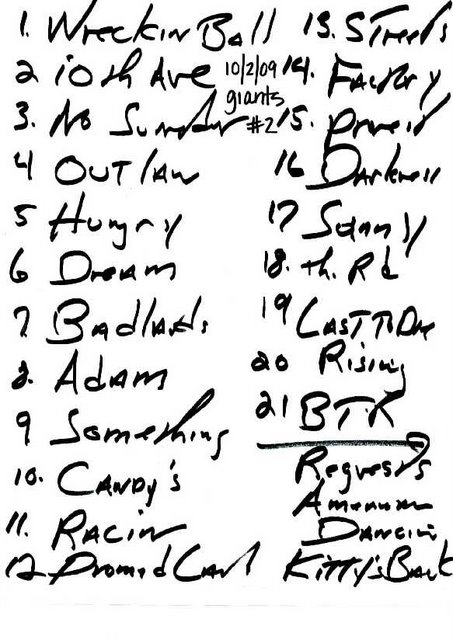 1. Wreckin Ball
2 10th Ave
3. No Surrender
4 OUTlaw
5 Hungry
6 Dream
7. Badlands
8. Adam
9 Something
10. Candy's
11. Racin
12 Promised Land
10/2/09
giants
#2
13. Streets
14. Factory
15. Prove it
16 Darkness
17
18. th. Rd
19 LAST TO Die
20 Rising
21 BTR
Requests
American
Dancin
Kitty's Back